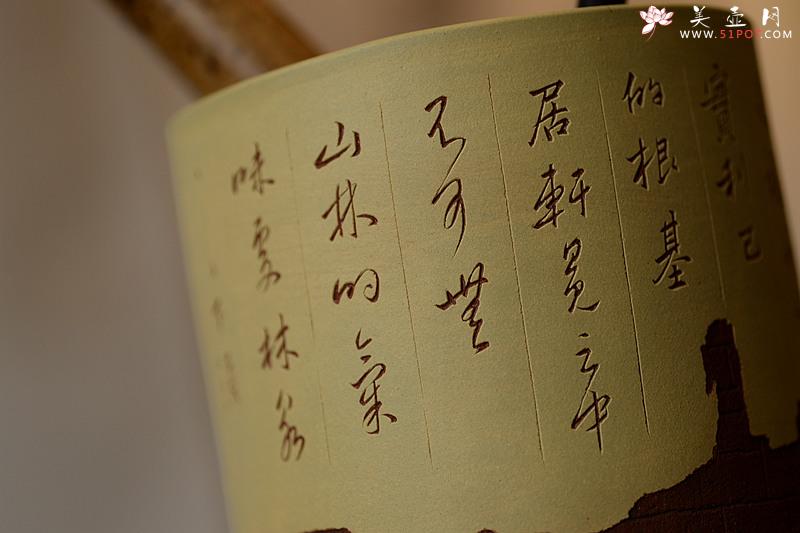 美壶网
WWW.51POT.COM
實利己
的根基
居軒冕之中
不可無
山林的氣
味處林泉